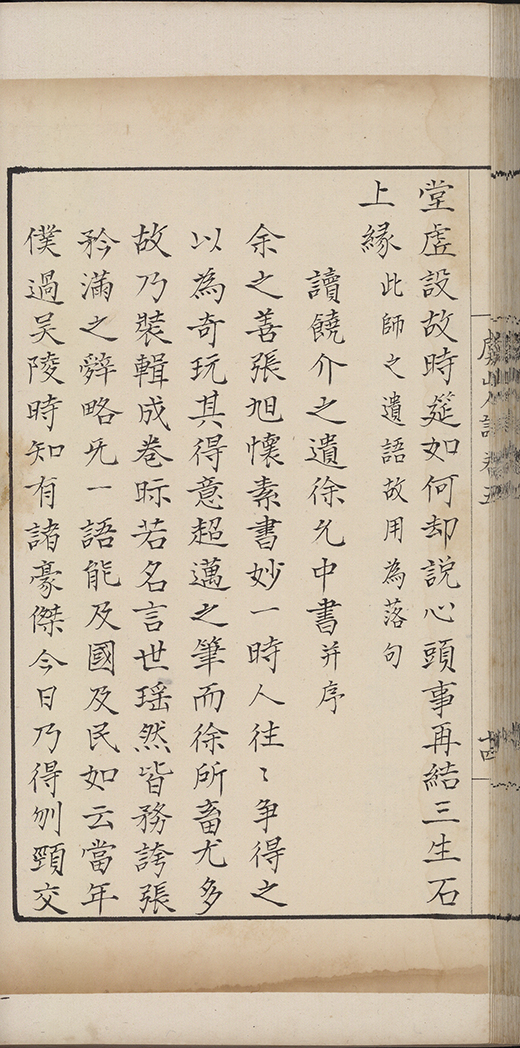 堂虗設故時筵如何却說心頭事再結三生石
上緣此師之遺語故用為落句
讀饒介之遺徐允中書并序
余之善張旭懷素書妙一時人往〻争得之
以為奇玩其得意超邁之筆而徐所畜尤多
故乃裝輯成卷眎若名言世瑶然皆務誇張
矜滿之辤略无一語能及國及民如云當年
僕過吴陵時知有諸豪傑今日乃得刎頸交